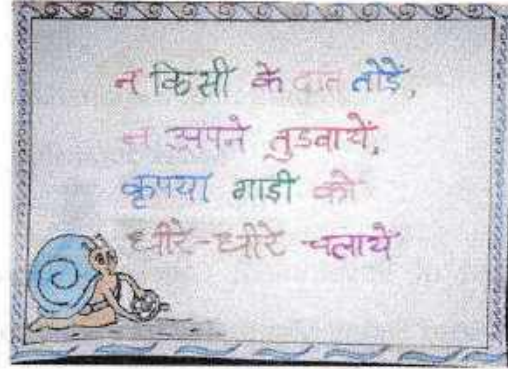 न किसी के दांत तोड़ें,
न अपने तुडवायें,
कृपया गाडी को
धीरे-धीरे चलायें